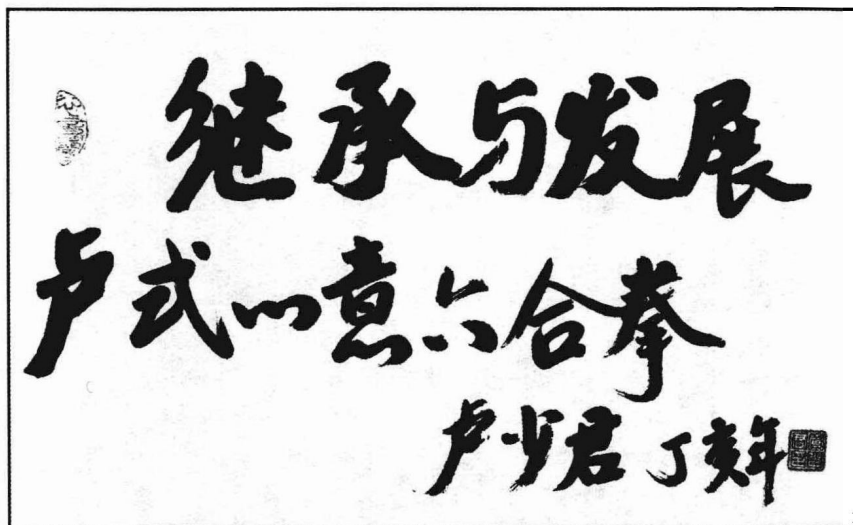 继承与发展
卢式心意六合拳
卢少君 丁亥年